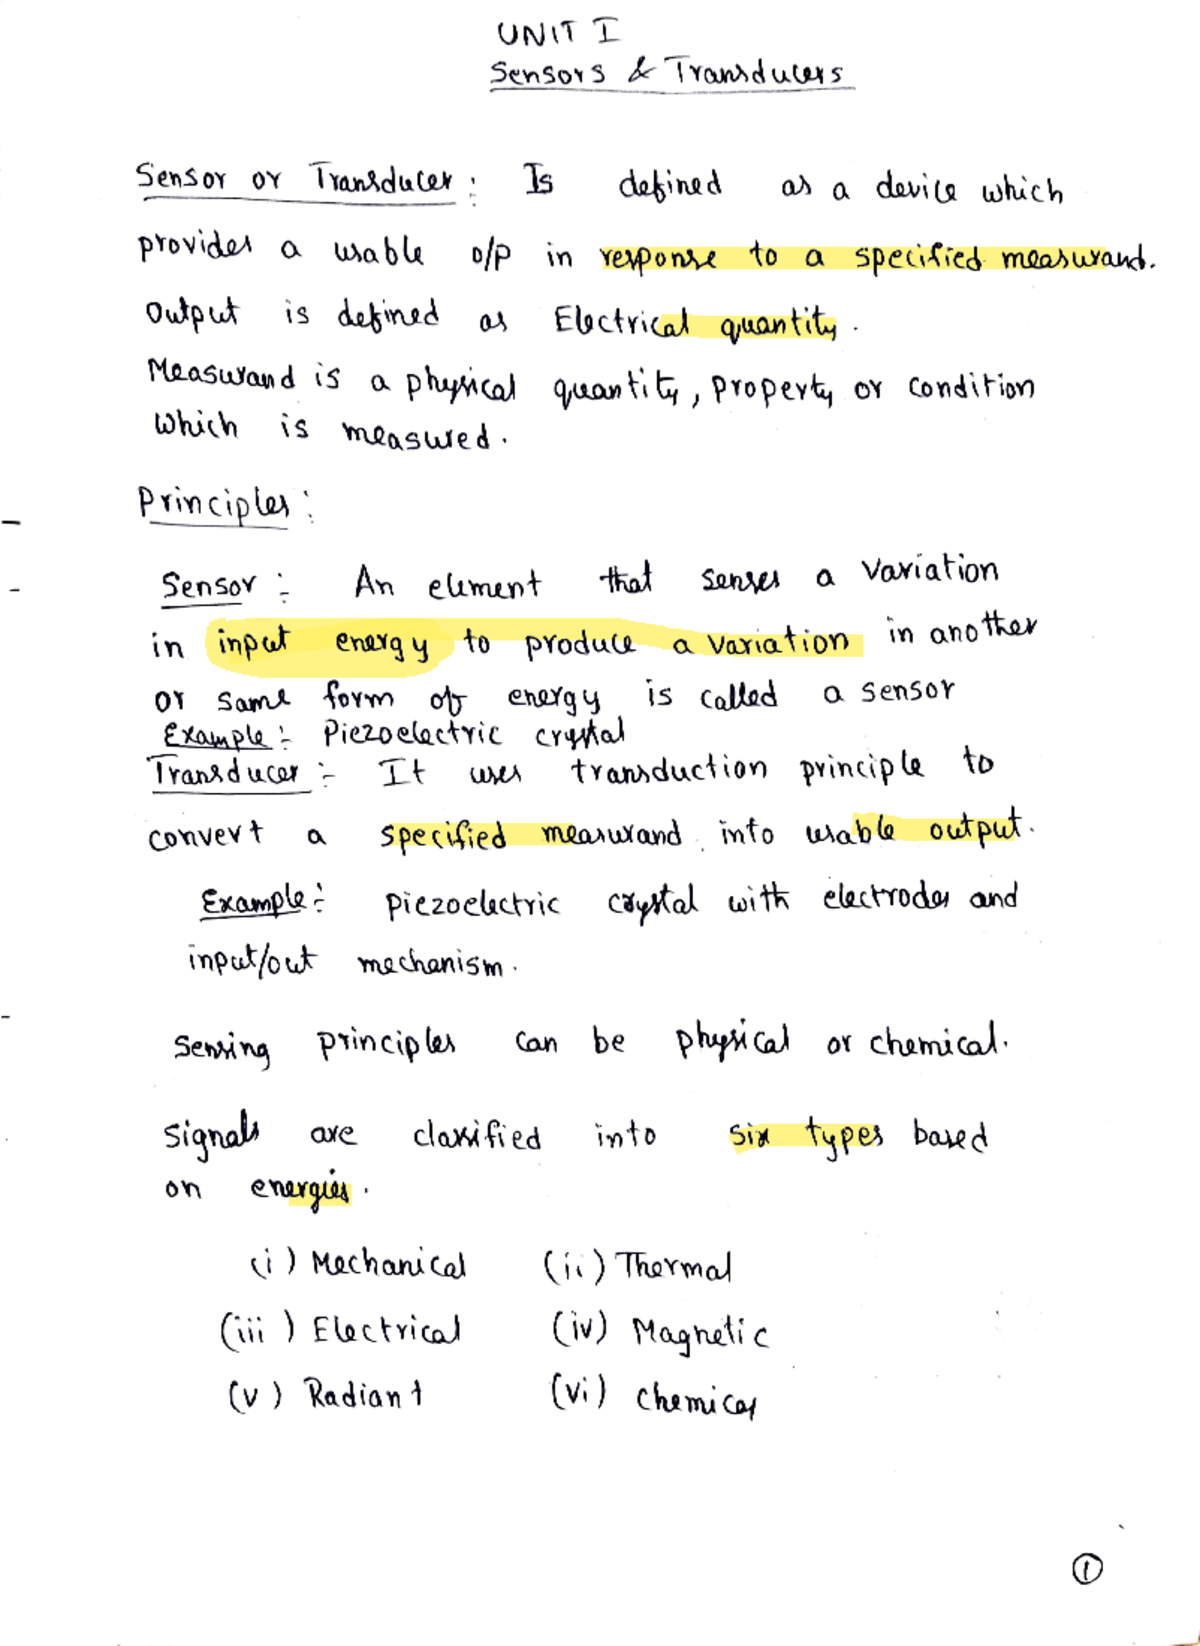 UNIT I
Sensors & Transducers
Sensor or Transducer : Is defined as a device which
provides a usable o/p in response to a specified measurand.
Output is defined as Electrical quantity.
Measurand is a physical quantity, property or condition
which is measured.
Principles :
Sensor :- An element that senses a variation
in input energy to produce a variation in another
or same form of energy is called a sensor
Example :- Piezoelectric crystal
Transducer :- It uses transduction principle to
convert a specified measurand into usable output.
Example :- piezoelectric crystal with electrodes and
input/out mechanism.
Sensing principles can be physical or chemical.
Signals are classified into six types based
on energies.
(i) Mechanical (ii) Thermal
(iii) Electrical (iv) Magnetic
(v) Radiant (vi) Chemical
1